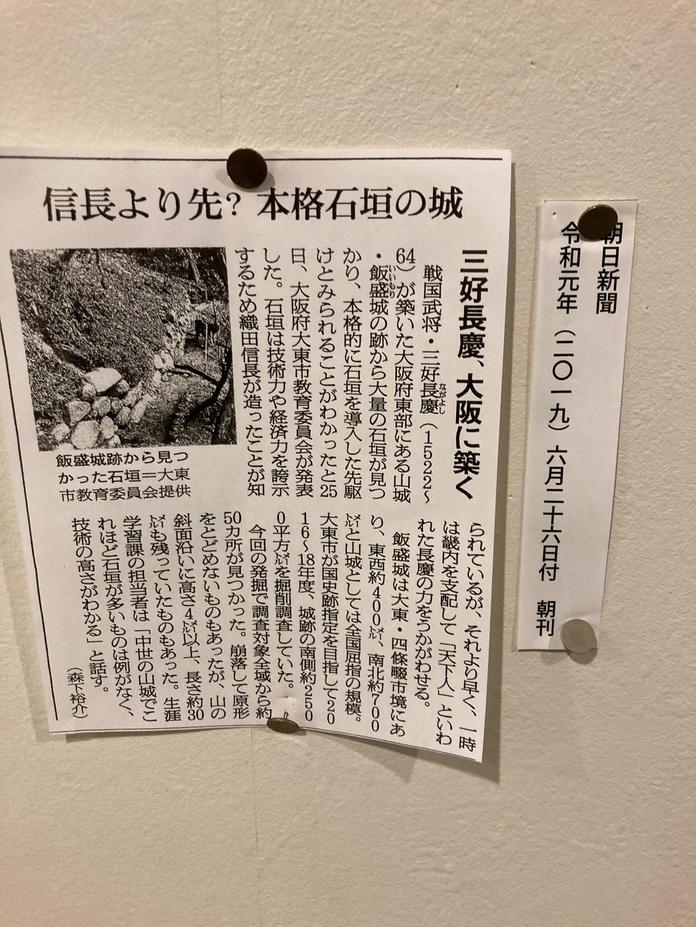 信長より先? 本格石垣の城
三好長慶、大阪に築く
戦国武将・三好長慶（1522〜
ながよし
64）が築いた大阪府東部にある山城
・飯盛城の跡から大量の石垣が見つ
いいもり
かり、本格的に石垣を導入した先駆
けとみられることがわかったと25
日、大阪府大東市教育委員会が発表
した。石垣は技術力や経済力を誇示
するため織田信長が造ったことが知
られているが、それより早く、一時
は畿内を支配して「天下人」といわ
れた長慶の力をうかがわせる。
飯盛城は大東・四條畷市境にあ
り、東西約400㍍、南北約700
㍍と山城としては全国屈指の規模。
大東市が国史跡指定を目指して20
16〜18年度、城跡の南側約250
0平方㍍を掘削調査していた。
今回の発掘で調査対象全域から約
50カ所が見つかった。崩落して原形
をとどめないものもあったが、山の
斜面沿いに高さ4㍍以上、長さ約30
㍍も残っていたものもあった。生涯
学習課の担当者は「中世の山城でこ
れほど石垣が多いものは例がなく、
技術の高さがわかる」と話す。
（森下裕介）
飯盛城跡から見つ
かった石垣＝大東
市教育委員会提供
朝日新聞
令和元年（二〇一九）六月二十六日付 朝刊